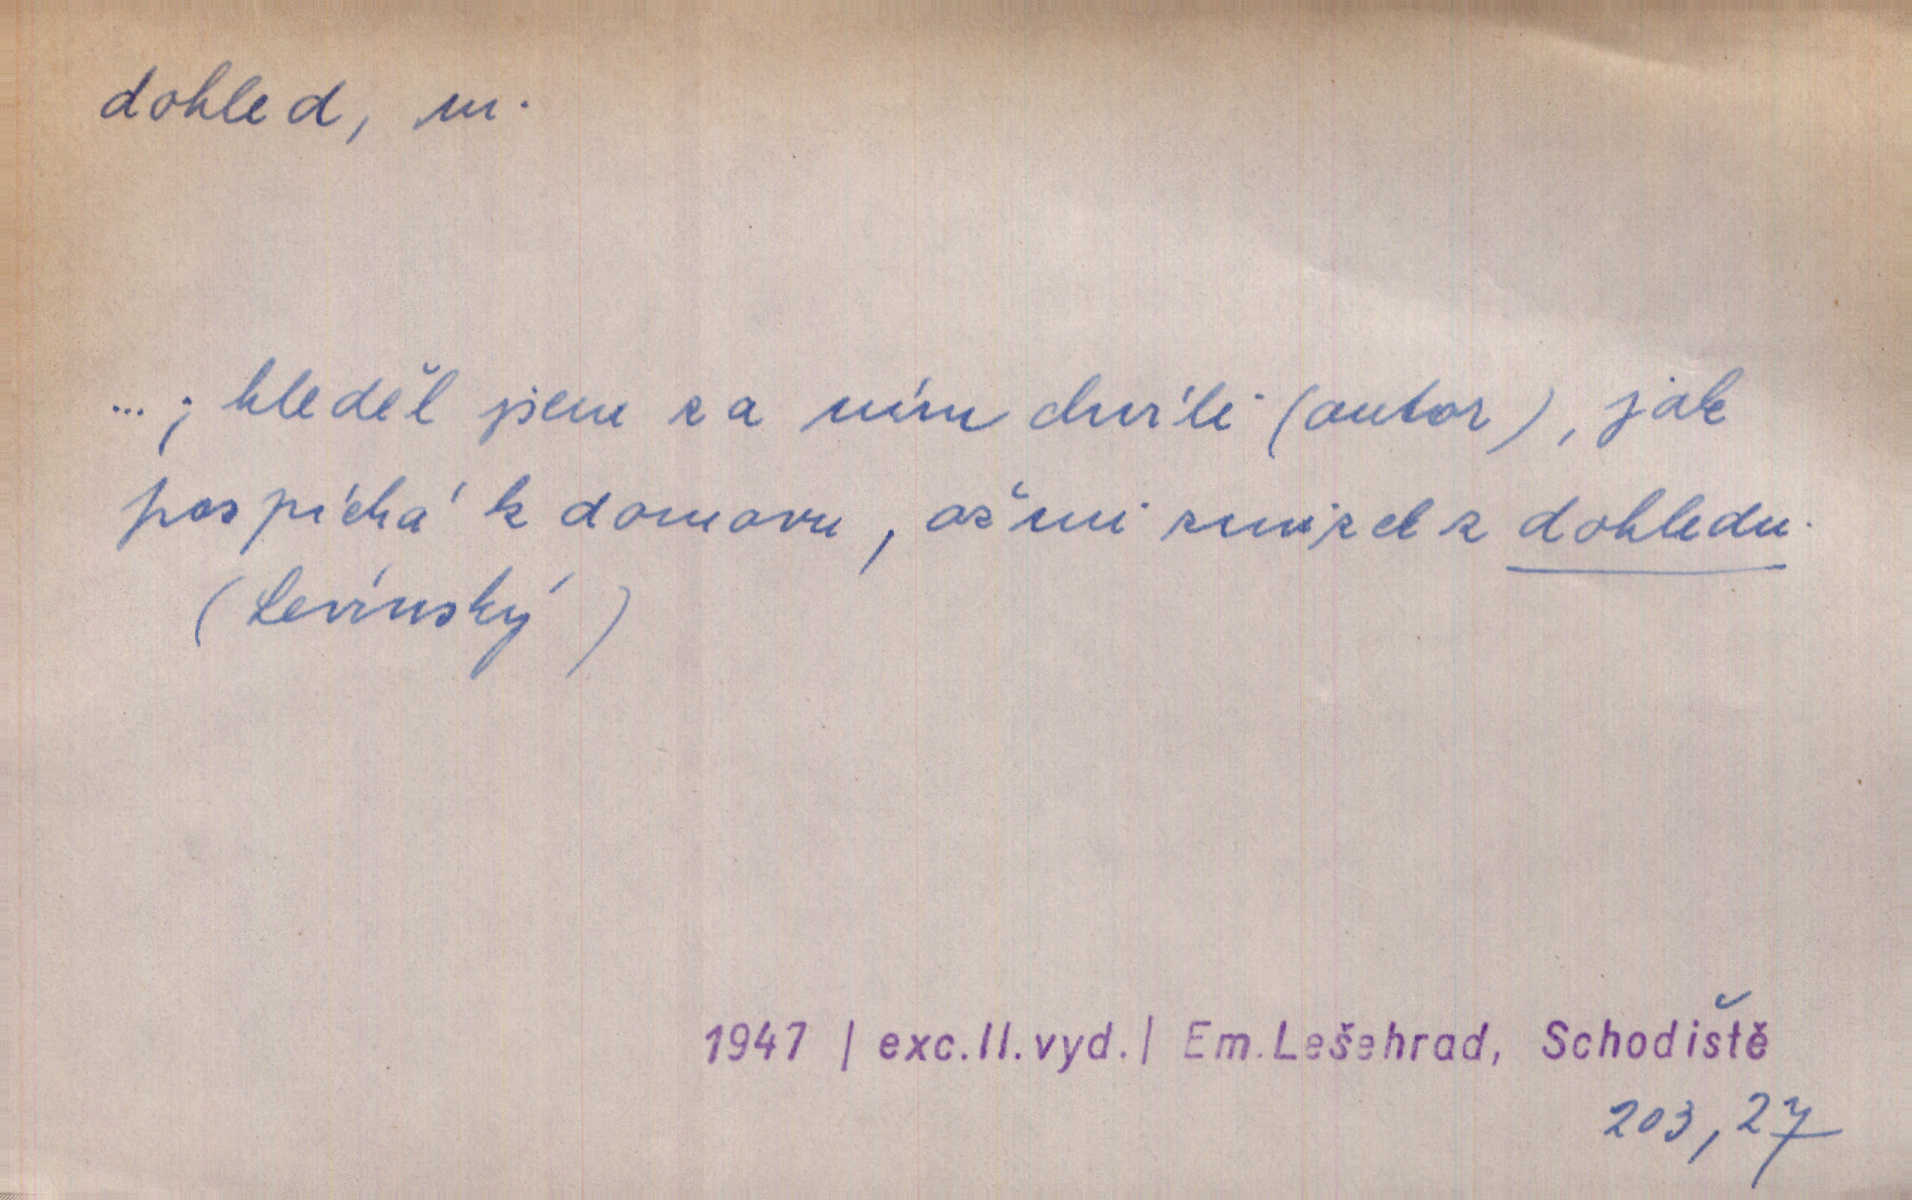 dohled, m.
...; hleděl jsem za ním chvíli (autor), jak
pospíchá k domovu, až mi zmizel z dohledu.
(Levínský)
1947 | exc. II. vyd. | Em. Lešehrad, Schodiště
203, 27